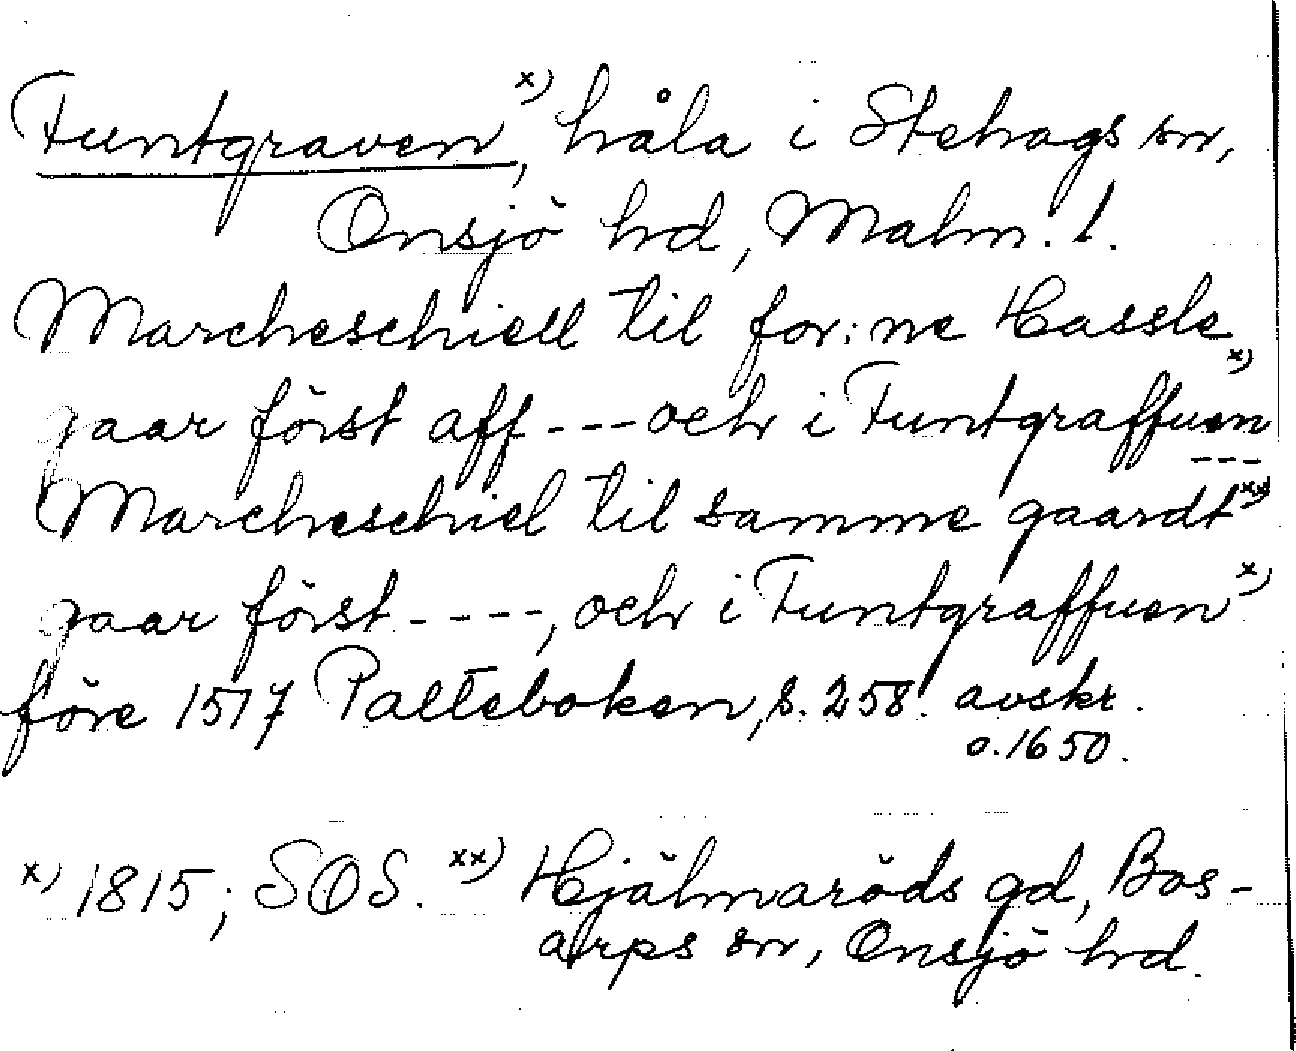 Funtgraven,x) håla i Stehags sn,
Onsjö hd, Malm. l.
Marcheschiell til for:ne Hassle
gaar först aff --- och i Funtgraffuenx)
---
Marcheschiel til samme gaardtxx)
gaar först ----, och i Funtgraffuenx)
före 1517 Palteboken, s. 258. avskr.
o. 1650.
x) 1815; SOS. xx) Hjälmaröds gd, Bos-
arps sn, Onsjö hd.